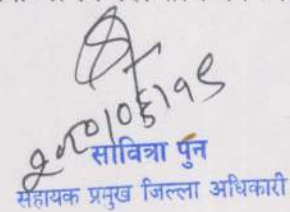 २०८०/०६/१९
सावित्रा पुन
सहायक प्रमुख जिल्ला अधिकारी